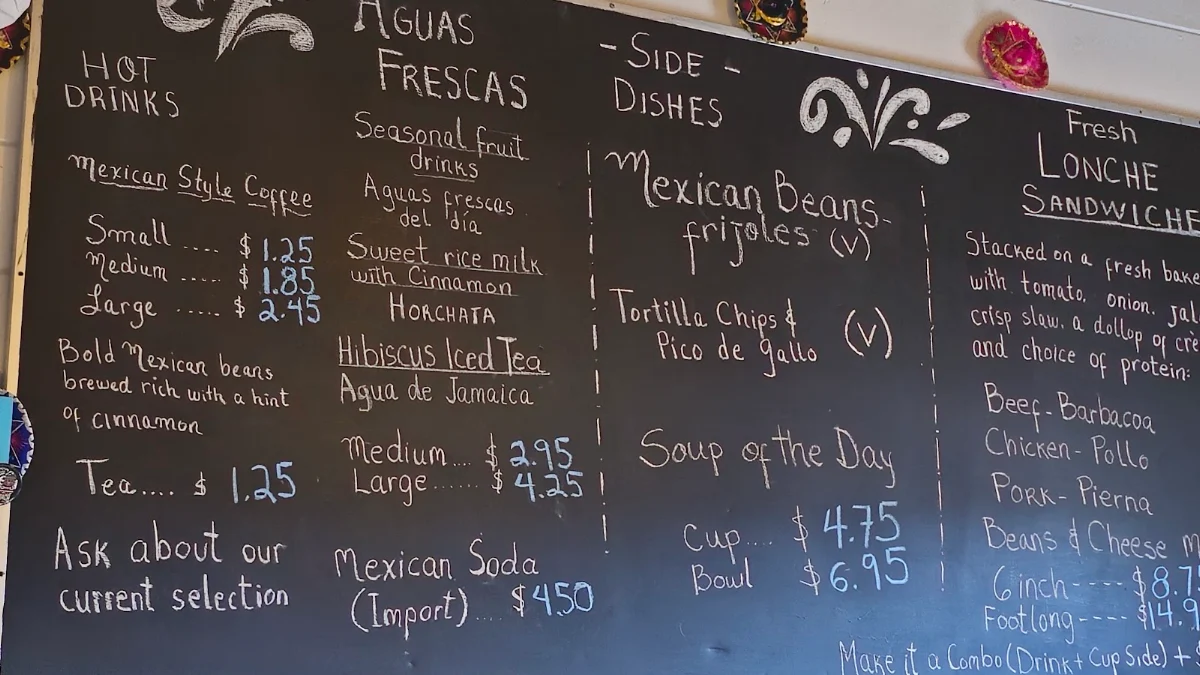 HOT
DRINKS
Mexican Style Coffee
Small .... $ 1.25
Medium ..... $ 1.85
Large ..... $ 2.45
Bold Mexican beans
brewed rich with a hint
of cinnamon
Tea.... $ 1.25
Ask about our
current selection
AGUAS
FRESCAS
Seasonal fruit
drinks
Aguas frescas
del día
Sweet rice milk
with Cinnamon
HORCHATA
Hibiscus Iced Tea
Agua de Jamaica
Medium.... $ 2.95
Large....... $ 4.25
Mexican Soda
(Import).... $4.50
- SIDE -
DISHES
Mexican Beans-
frijoles (V)
Tortilla Chips &
Pico de gallo (V)
Soup of the Day
Cup.... $ 4.75
Bowl $ 6.95
Fresh
LONCHE
SANDWICHE
Stacked on a fresh bake
with tomato, onion, jal
crisp slaw, a dollop of cre
and choice of protein:
Beef-Barbacoa
Chicken-Pollo
PORK-Pierna
Beans & Cheese M
6 inch ---- $8.7
Footlong---- $14.9
Make it a Combo (Drink + Cup Side) + $